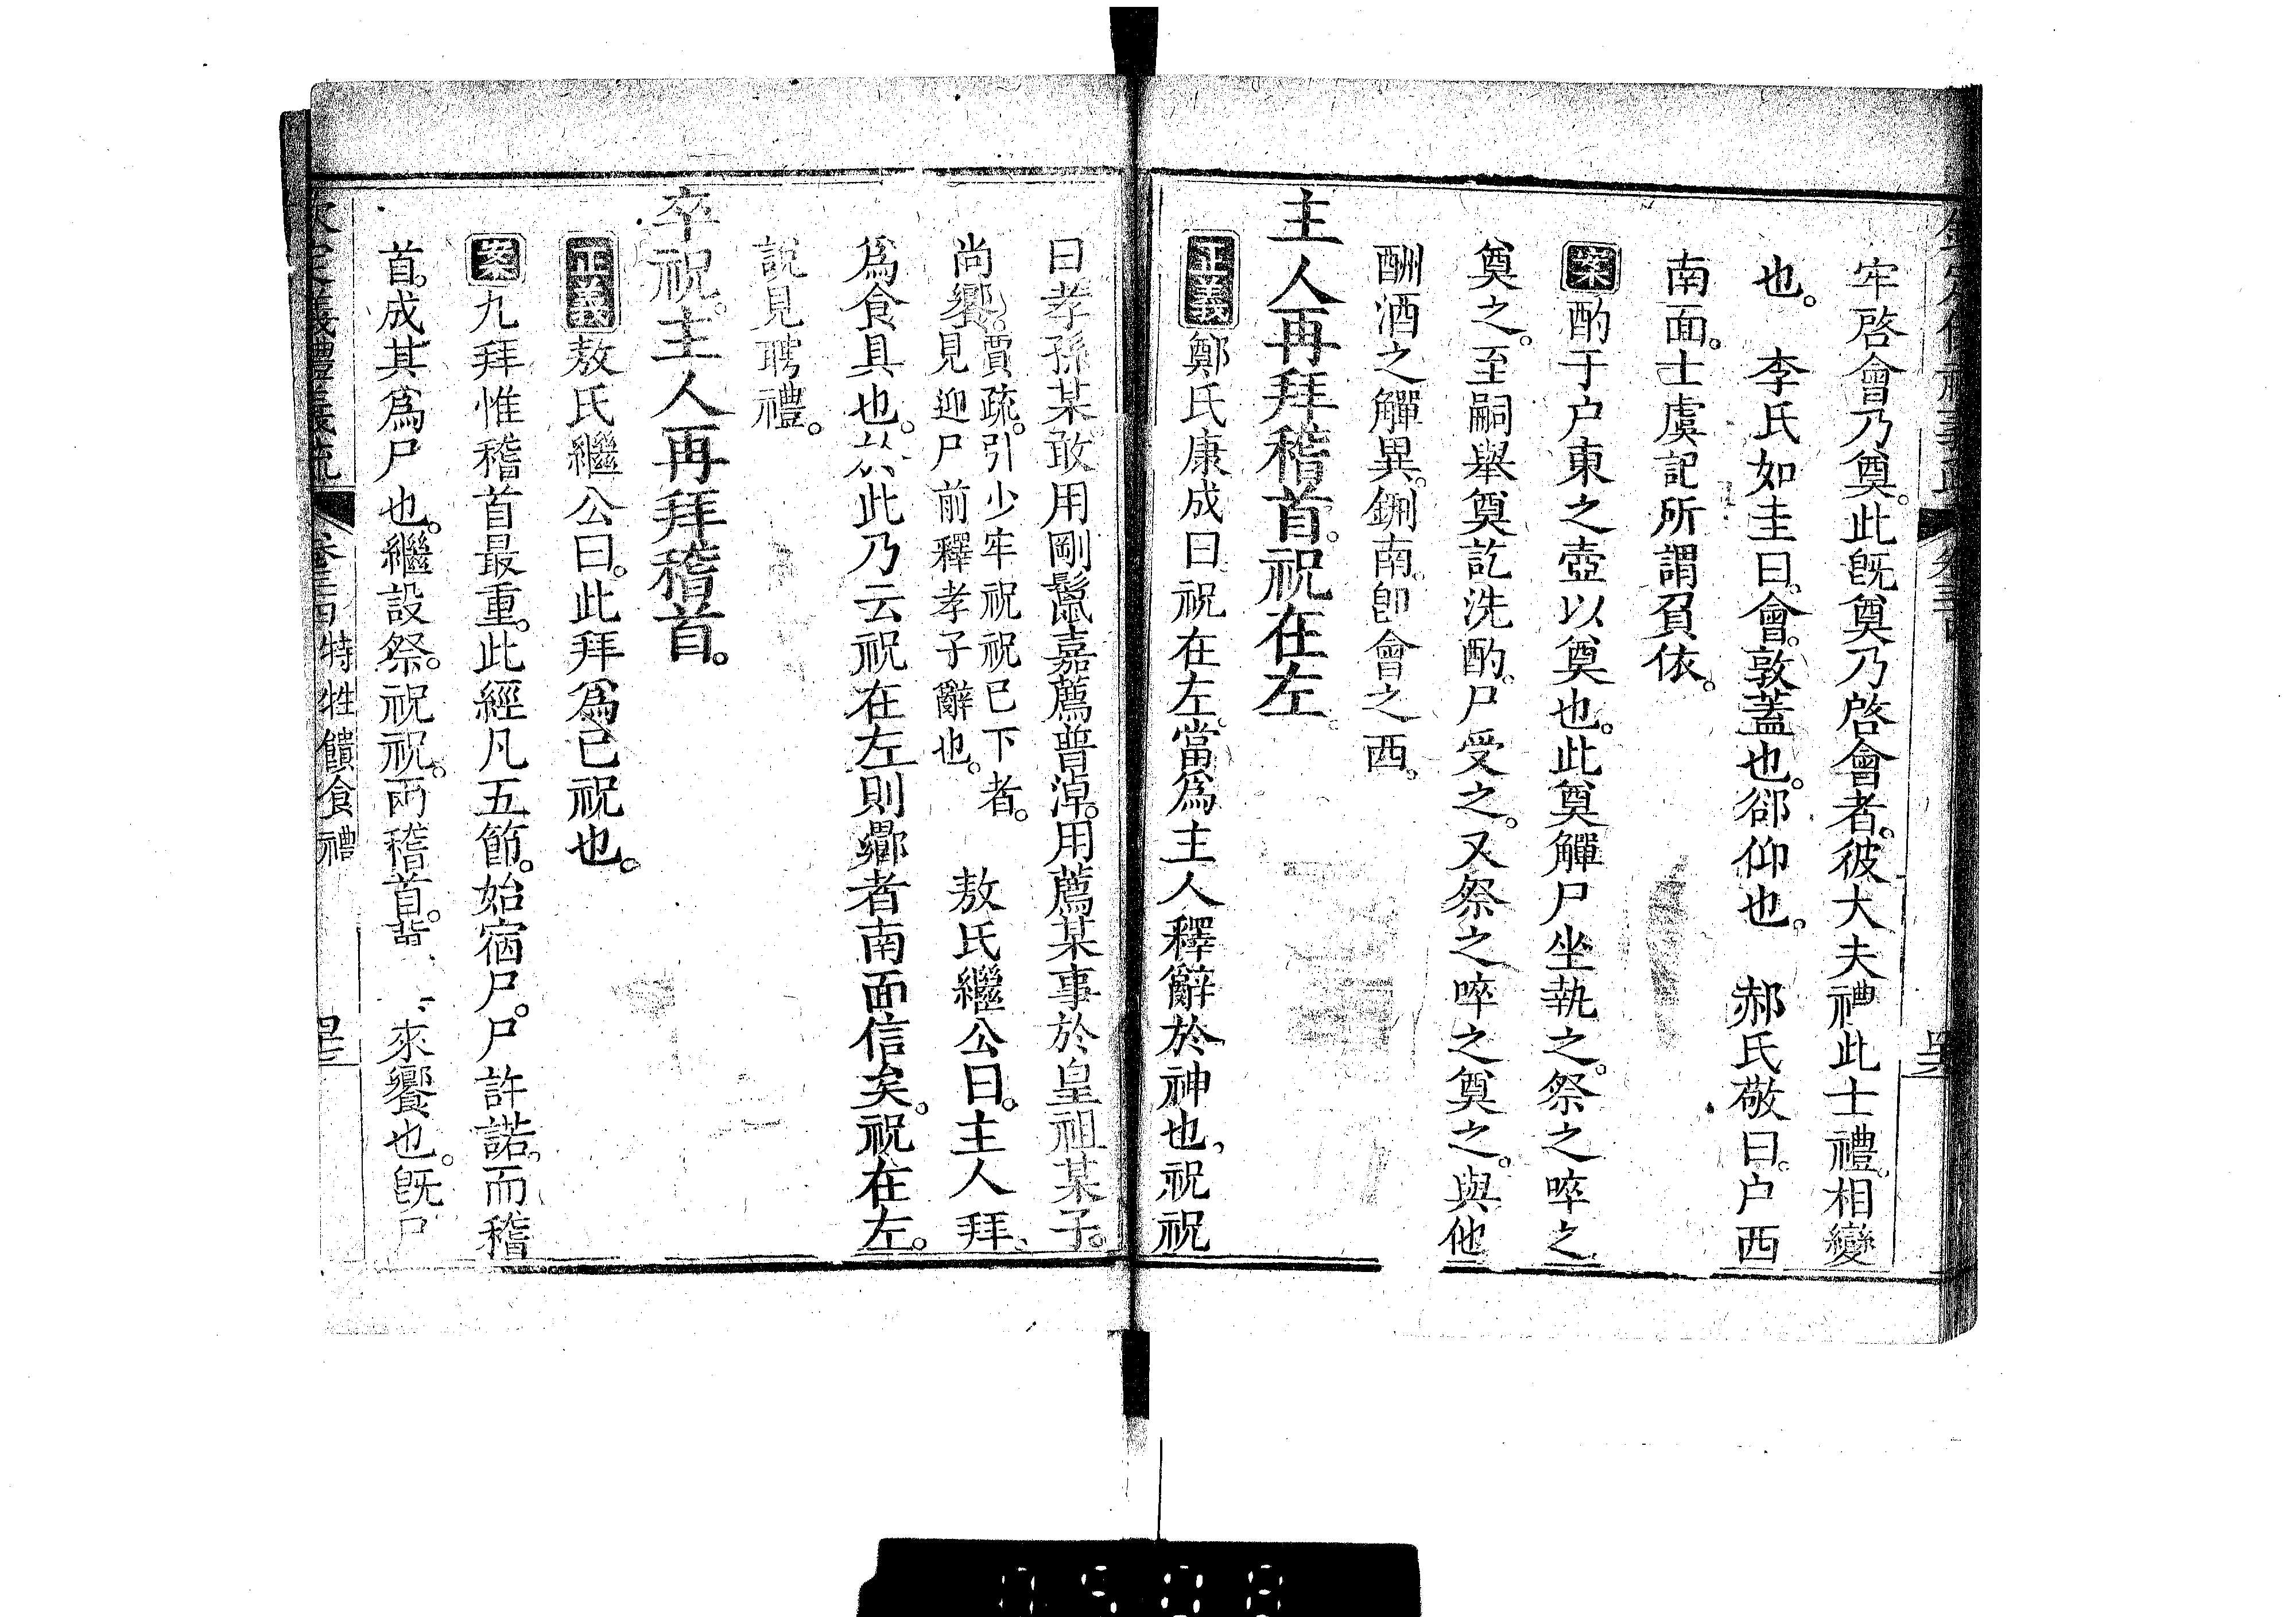 牢啓會乃奠。此旣奠乃啓會者。彼大夫禮此士禮。相變
也。　李氏如圭曰。會。敦蓋也。郤仰也。　郝氏敬曰。户西
南面。士虞記所謂負依。
案酌于户東之壺以奠也。此奠觶尸坐執之。祭之啐之
奠之。至嗣舉奠訖洗酌。尸受之。又祭之啐之奠之。與他
酬酒之觶異。鉶南。卽會之西。
主人再拜稽首。祝在左。
正義鄭氏康成曰。祝在左。當爲主人釋辭於神也。祝祝
曰孝孫某。敢用剛鬣嘉薦普淖。用薦某事於皇祖某子。
尚饗。賈疏。引少牢祝祝已下者。見迎尸前釋孝子辭也。　敖氏繼公曰。主人拜。
爲食具也。於此乃云祝在左則鄉者南面信矣。祝在左。
說見聘禮。
卒祝。主人再拜稽首。
正義敖氏繼公曰。此拜爲已祝也。
案九拜惟稽首最重。此經凡五節。始宿尸。尸許諾。而稽
首。成其爲尸也。繼設祭。祝祝。兩稽首。皆來饗也。旣尸
欽定義禮義疏　卷三十四　特牲饋食禮　四三